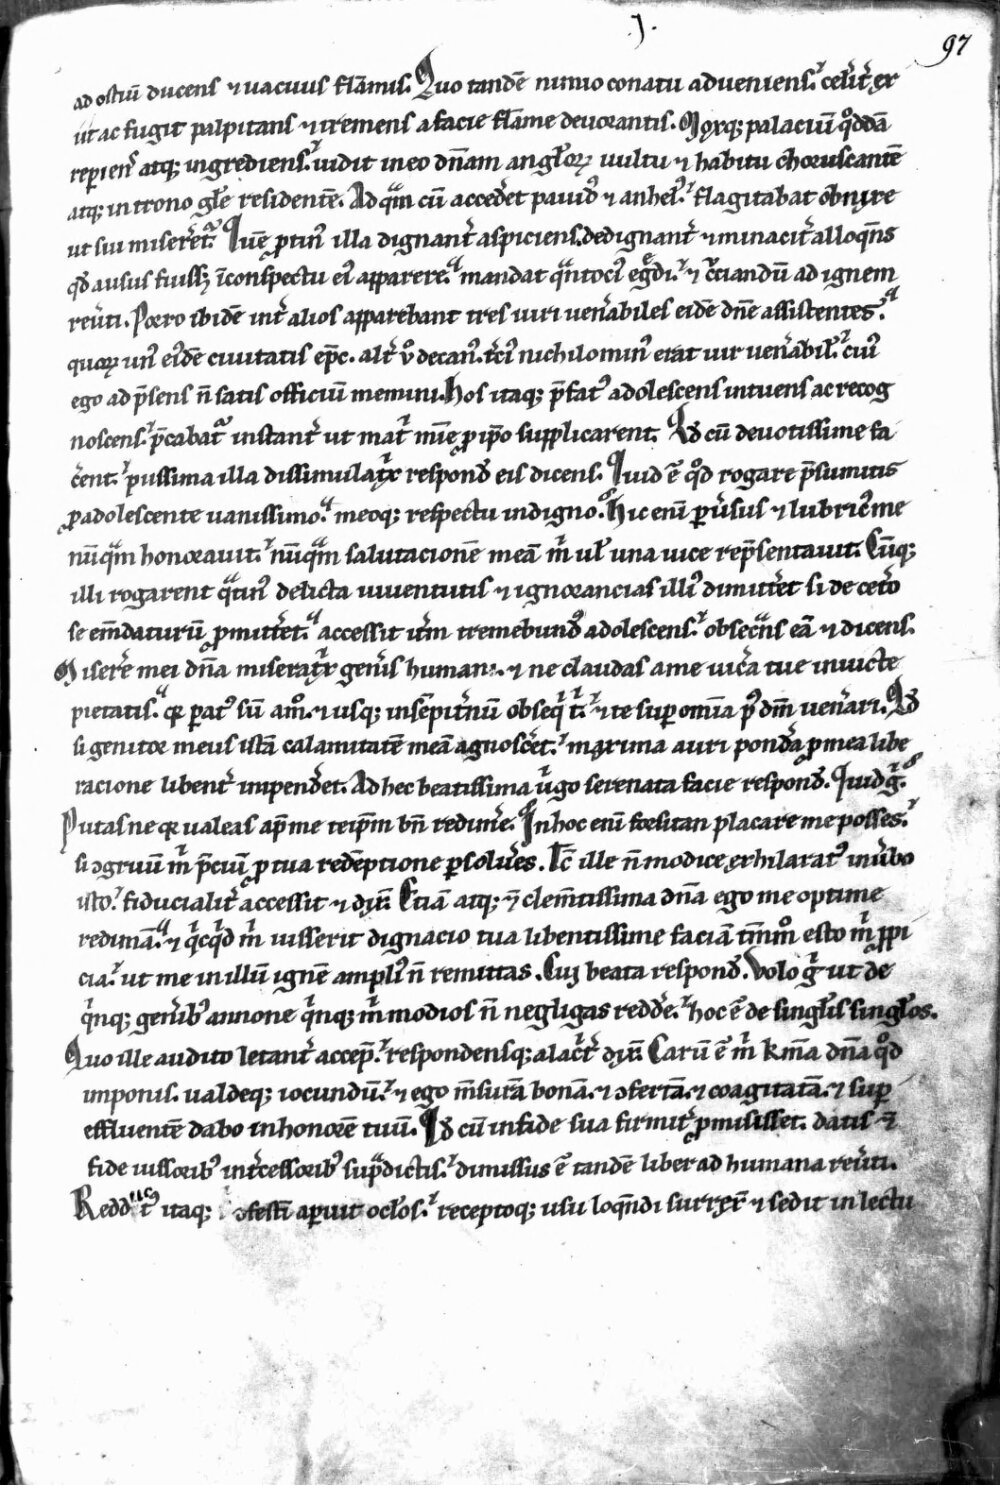 .j.
97
ad ostiū ducens ⁊ uacuus flāmis. Quo tandē nimio conatu adueniens. celit̾ ex
iit ac fugit palpitans ⁊ tremens a facie flāme deuorantis. Moxq; palaciū qͦddā
reꝑiens atq; ingrediens. uidit in eo dn̄am angl̾oꝝ uultu ⁊ habitu choruscantē
atq; in trono gl̾e residentē. Ad qͣm cū acced̾et pauidꝰ ⁊ anhelꝰ. flagitabat obnixe
ut sui miseret̾. Quē ꝓtinꝰ illa dignant̾ aspiciens. dedignant̾ ⁊ minacit̾ alloqͣns
qd̾ ausus fuiss; ī conspectu eiꝰ apparere. mandat qͣntociꝰ eg̾di. ⁊ cͬciandū ad ignem
reu̾ti. Porro ibidē int̾ alios apparebant tres uiri uen̾abiles eidē dn̄e assistentes.
quoꝝ unꝰ eiꝰdē ciuitatis ep̄c. alt̾ ṽ decanꝰ. t̾ciꝰ nichilominꝰ erat uir uen̾abil̾. cuiꝰ
ego ad p̄sens n̄ satis officiū memini. Hos itaq; p̄fatꝰ adolescens intuens ac recog
noscens. p̄cabatᷓ instant̾ ut mat̾ mīe ꝓ ip̄o supplicarent. Qd̾ cū deuotissime fa
c̾ent. piissima illa dissimulatͥx respond̾ eis dicens. Quid ē qͦd rogare p̄sumitis
ꝓ adolescente uanissimo. meoq; respectu indigno. Hic enī ꝑu̾sus ⁊ lubricꝰ me
nūqͣm honorauit. nūqͣm salutacionē meā mͥ ul̾ una uice rep̄sentauit. Cūq;
illi rogarent qͣtinꝰ delicta iuuentutis ⁊ ignorancias illiꝰ dimitt̾et si de cet̾o
se em̄daturū ꝓmitt̾et. accessit it̾m tremebundꝰ adolescens. obsecͣns eā ⁊ dicens.
Miser̾e mei dn̄a miseratͥx gen̾is humani. ⁊ ne claudas a me uisc̾a tue inuicte
pietatis. qꝛ paratꝰ sū am̊. ⁊ usq; in sēpit̾nū obseqͥ tͥ. ⁊ te suꝑ om̄ia pꝰ dm̄ uen̾ari. Qd̾
si genitor meus istā calamitatē meā agnosc̾et. maxima auri pond̾a ꝓ mea libe
racione libent̾ impend̾et. Ad hec beatissima uͥgo serenata facie respond̾. Quid gͥ.
Putas ne qꝛ ualeas ap̄ me teip̄m bn̄ redim̾e. In hoc enī forsitan placare me posses.
si ꝯgruū mͥ p̄ciū ꝓ tua redēptione ꝑsolu̾es. Tc̄ ille n̄ modice exhilaratꝰ in u̾bo
isto. fiducialit̾ accessit ⁊ dix̄. Etiā atq; ⁊ clem̄tissima dn̄a ego me optime
redimā. ⁊ qͥcqͥd mͥ iusserit dignacio tua libentissime faciā tm̄m̊ esto mͥ ꝓpi
cia. ut me in illū ignē ampliꝰ n̄ remittas. Cui beata respond̾. Volo gͥ ut de
qͥnq; gen̾ibꝰ annone qͥnq; mͥ modios n̄ negligas redd̾e. hoc ē de singl̾is singl̾os.
Quo ille audito letant̾ accep̄. respondensq; alac̾t̾ dix̄. Carū ē mͥ kr̄ma dn̄a qͦd
imponis. ualdeq; iocundū. ⁊ ego m̄surā bonā. ⁊ ꝯfertā. ⁊ coagitatā. ⁊ suꝑ
effluentē dabo in honorē tuū. Qd̾ cū in fide sua firmit̾ ꝓmisisset. datis ⁊
fide iussoribꝰ int̾cessoribꝰ sup̾dictis. dimissus ē tandē liber ad humana reu̾ti.
Redditꝰ itaq; ꝯfestī aꝑuit ocl̾os. receptoq; usu loqͣndi surrex̄ ⁊ sedit in lectu